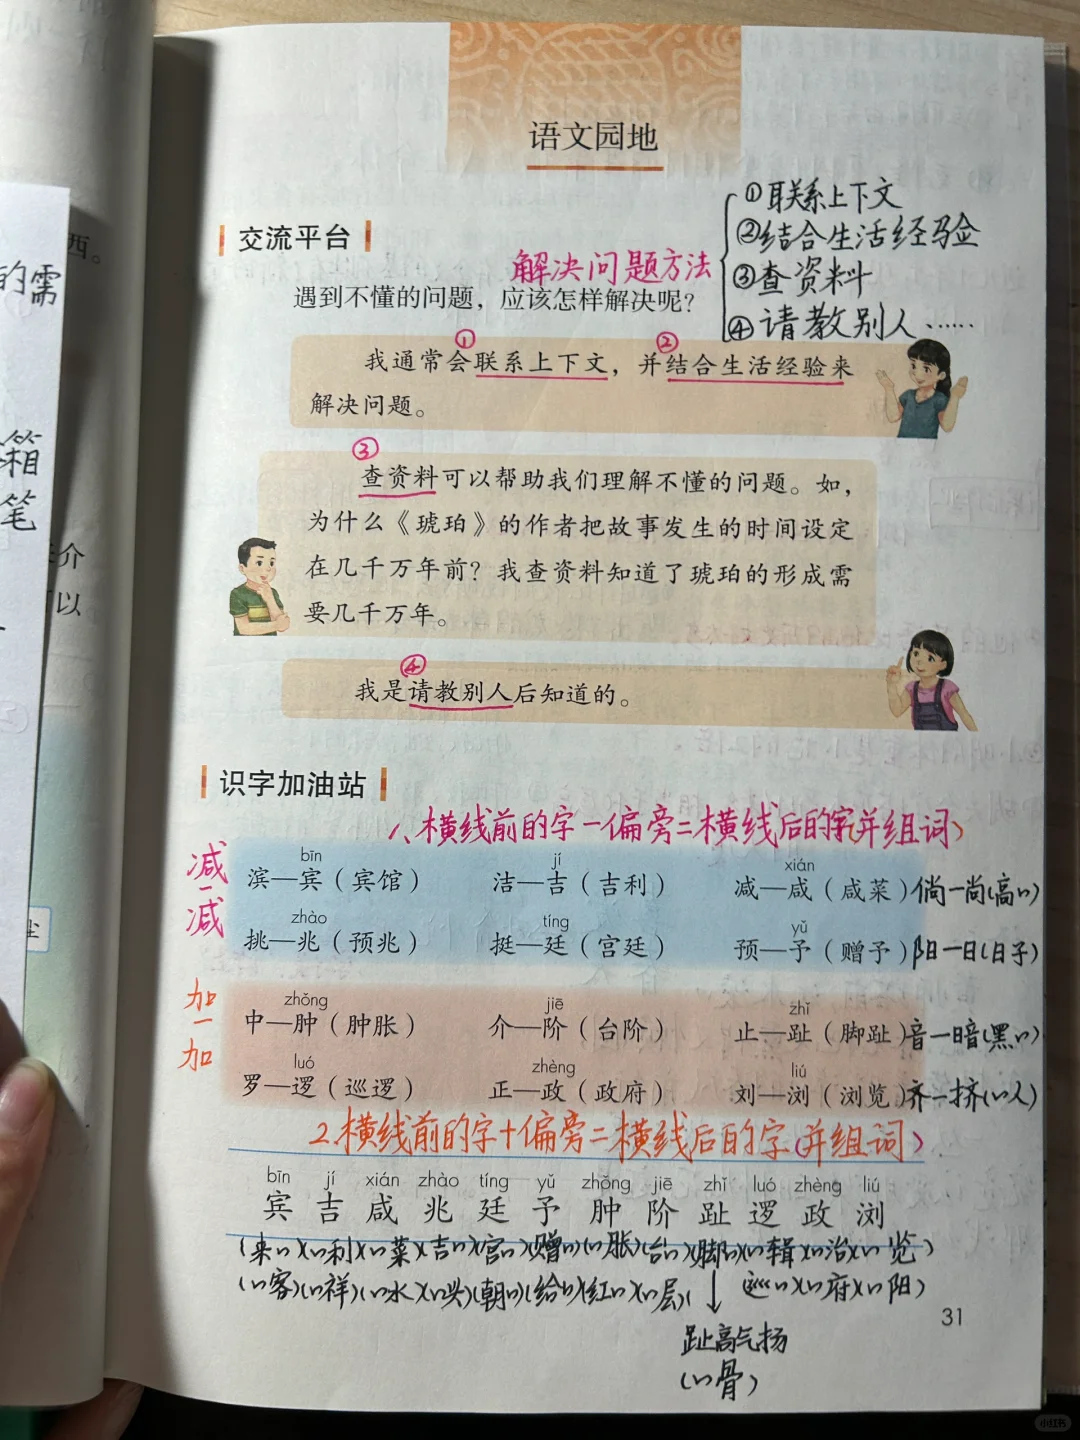 西。
的需
箱
笔
介
以
语文园地
交流平台
解决问题方法
①联系上下文
②结合生活经验
③查资料
④请教别人……
遇到不懂的问题，应该怎样解决呢？
① ②
我通常会联系上下文，并结合生活经验来
解决问题。
③
查资料可以帮助我们理解不懂的问题。如，
为什么《琥珀》的作者把故事发生的时间设定
在几千万年前？我查资料知道了琥珀的形成需
要几千万年。
④
我是请教别人后知道的。
识字加油站
1、横线前的字－偏旁=横线后的字(并组词)
减一减
bīn jí xián
滨—宾（宾馆） 洁—吉（吉利） 减—咸（咸菜） 倘—尚(高〃)
zhào tíng yǔ
挑—兆（预兆） 挺—廷（宫廷） 预—予（赠予） 阳—日(日子)
加一加
zhǒng jiē zhǐ
中—肿（肿胀） 介—阶（台阶） 止—趾（脚趾） 音—暗(黑〃)
luó zhèng liú
罗—逻（巡逻） 正—政（政府） 刘—浏（浏览） 齐—挤(〃人)
2.横线前的字+偏旁=横线后的字(并组词)
bīn jí xián zhào tíng yǔ zhǒng jiē zhǐ luó zhèng liú
宾 吉 咸 兆 廷 予 肿 阶 趾 逻 政 浏
(来〃)(〃利)(〃菜)(吉〃)(宫〃)(赠〃)(〃胀)(台〃)(脚〃)(〃辑)(〃治)(〃览)
(〃客)(〃祥)(〃水)(〃头)(朝〃)(给〃)(红〃)(〃层)( (巡〃)(〃府)(〃阳)
趾高气扬
(〃骨)
31
小红书